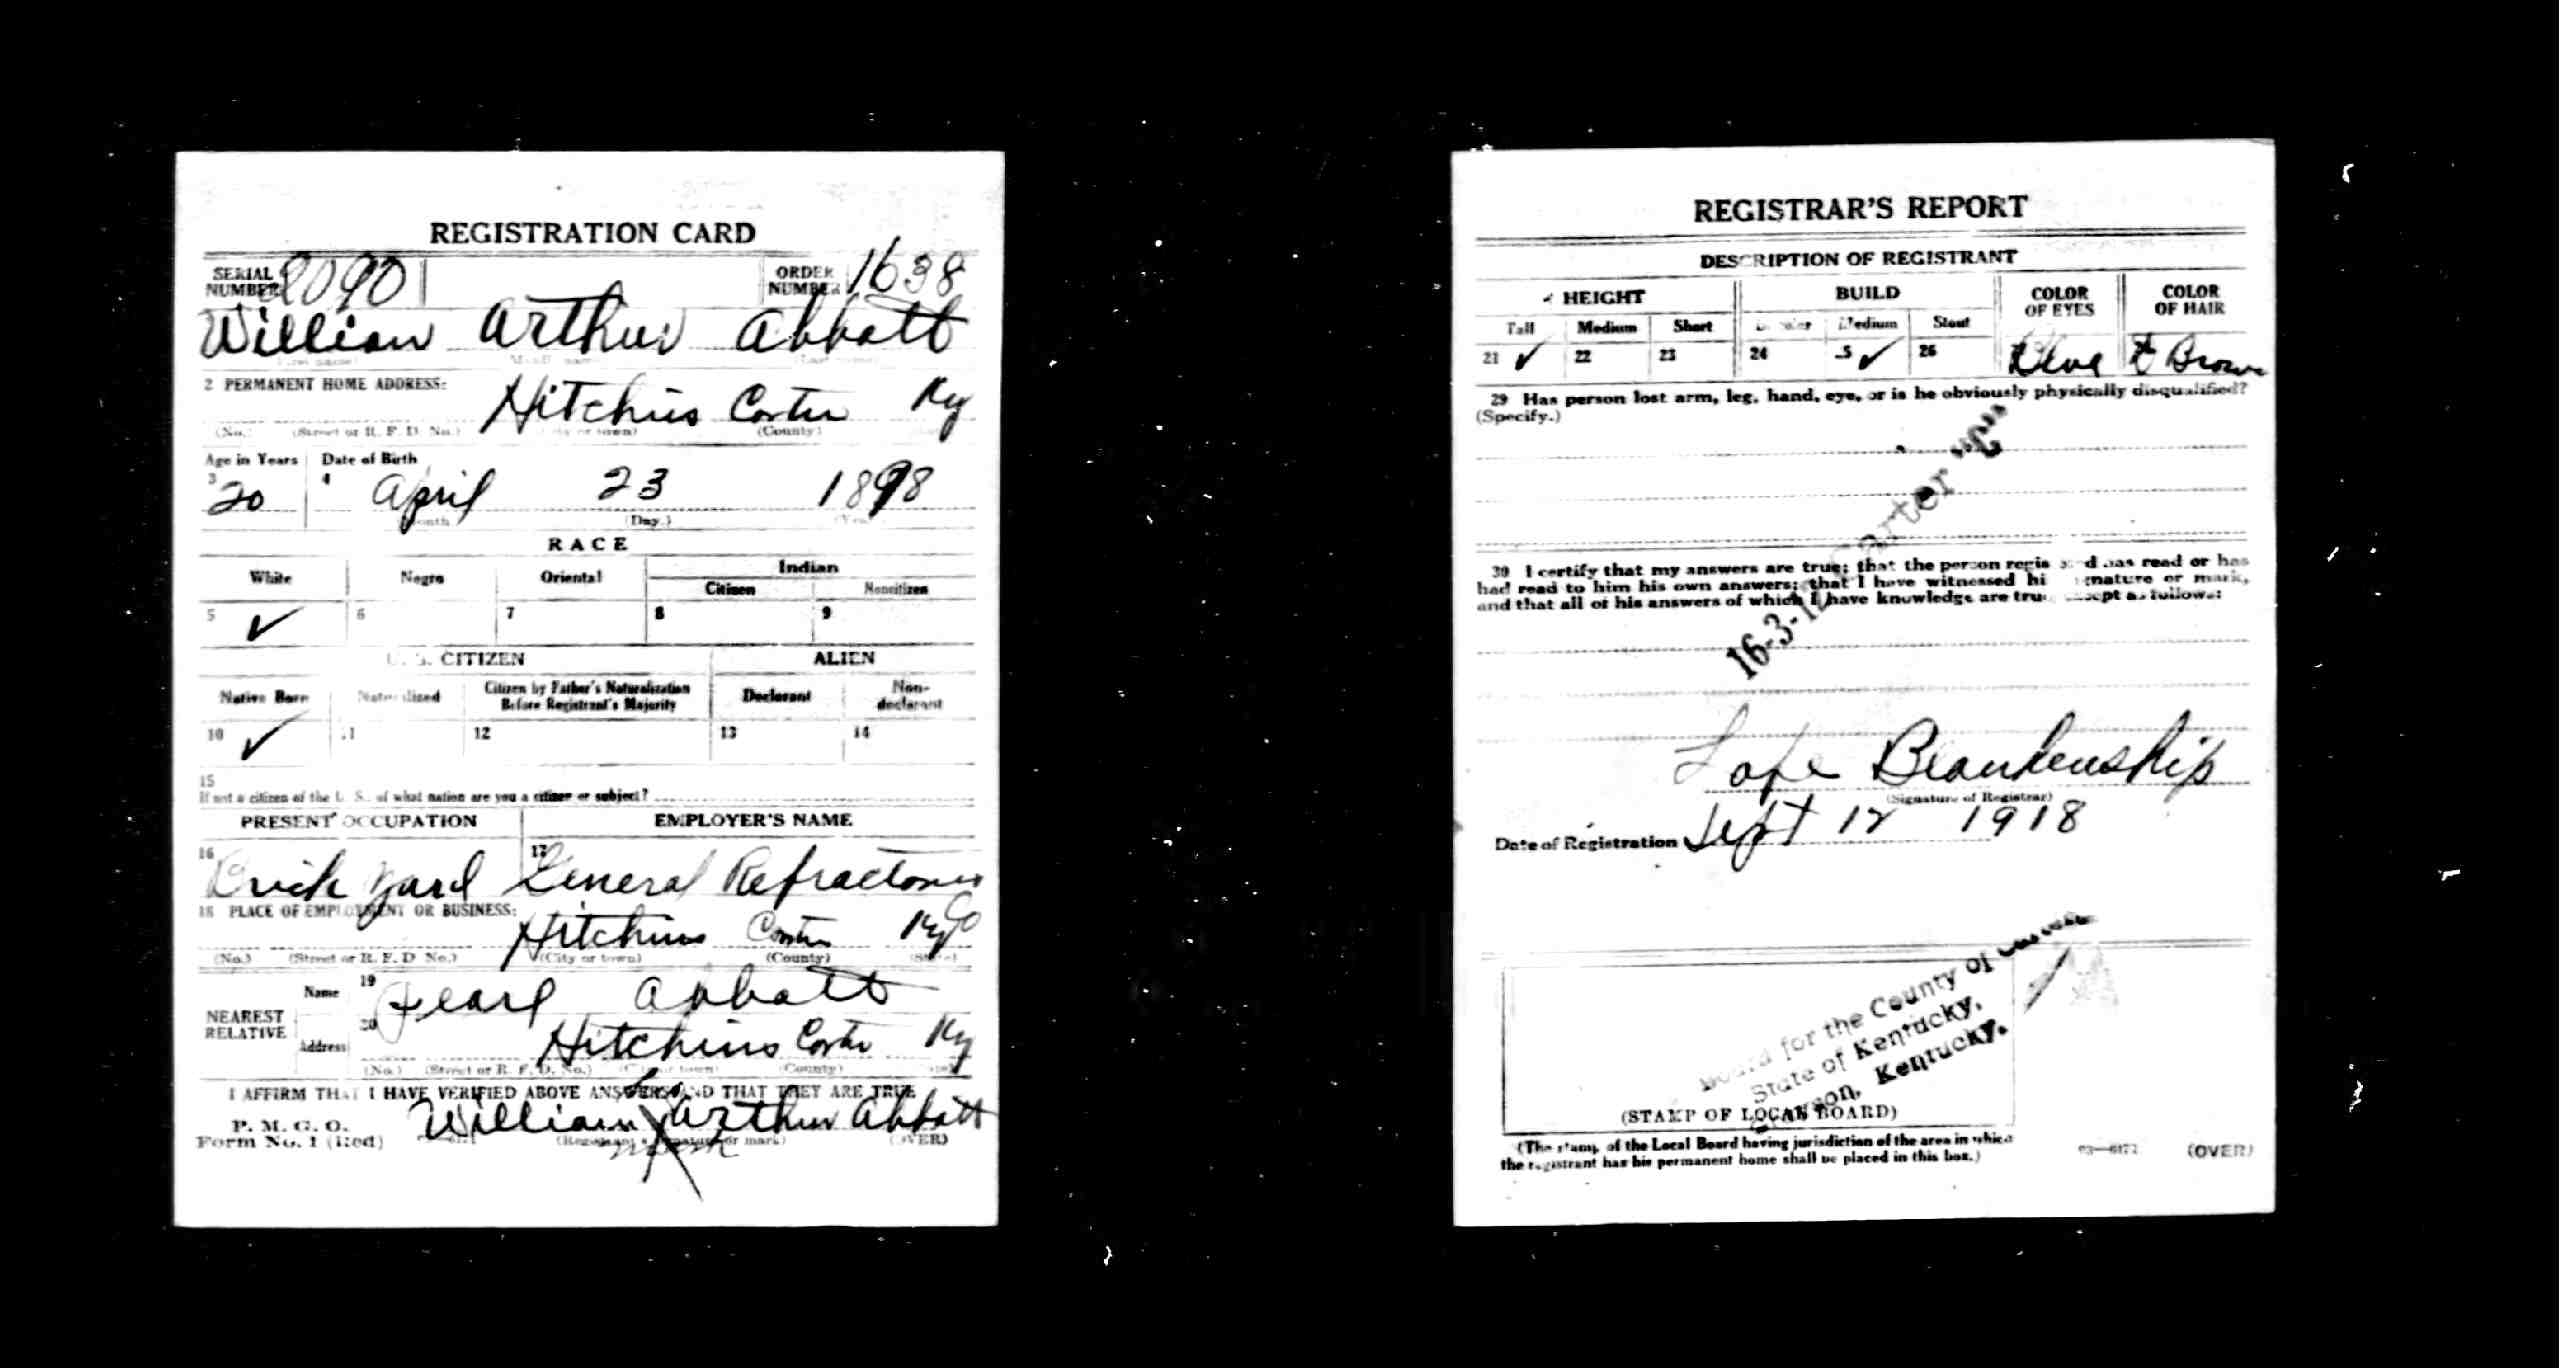 REGISTRATION CARD
SERIAL NUMBER 2090 ORDER NUMBER 1638
William Arthur Abbott
2 PERMANENT HOME ADDRESS:
Hitchins Carter Ky
(No.) (Street or R. F. D. No.) (City or town) (County)
Age in Years Date of Birth
3 20 4 April 23 1898
(Month) (Day.) (Year)
RACE
White Negro Oriental Indian
Citizen Noncitizen
5 ✓ 6 7 8 9
U. S. CITIZEN ALIEN
Native Born Naturalized Citizen by Father's Naturalization Before Registrant's Majority Declarant Non-declarant
10 ✓ 11 12 13 14
15
If not a citizen of the U. S., of what nation are you a citizen or subject?
PRESENT OCCUPATION EMPLOYER'S NAME
16 Brick Yard 17 General Refractories Co
18 PLACE OF EMPLOYMENT OR BUSINESS:
Hitchins Carter Ky
(No.) (Street or R. F. D. No.) (City or town) (County) (State)
NEAREST RELATIVE
Name 19 Pearl Abbott
Address 20 Hitchins Carter Ky
(No.) (Street or R. F. D. No.) (City or town) (County) (State)
I AFFIRM THAT I HAVE VERIFIED ABOVE ANSWERS AND THAT THEY ARE TRUE
P. M. G. O.
Form No. 1 (Red)
William Arthur Abbott
(Registrant's signature or mark) (OVER)
mark
REGISTRAR'S REPORT
DESCRIPTION OF REGISTRANT
HEIGHT BUILD COLOR OF EYES COLOR OF HAIR
Tall Medium Short Slender Medium Stout
21 ✓ 22 23 24 25 ✓ 26 Blue Brown
29 Has person lost arm, leg, hand, eye, or is he obviously physically disqualified?
(Specify.)
16-3-12 Carter "C"
30 I certify that my answers are true; that the person registered has read or has
had read to him his own answers; that I have witnessed his signature or mark,
and that all of his answers of which I have knowledge are true, except as follows:
Blankenship
(Signature of Registrar)
Date of Registration Sept 12 1918
Board for the County of Carter
State of Kentucky,
Grayson, Kentucky.
(STAMP OF LOCAL BOARD)
(The stamp of the Local Board having jurisdiction of the area in which
the registrant has his permanent home shall be placed in this box.)
03—6171 (OVER)